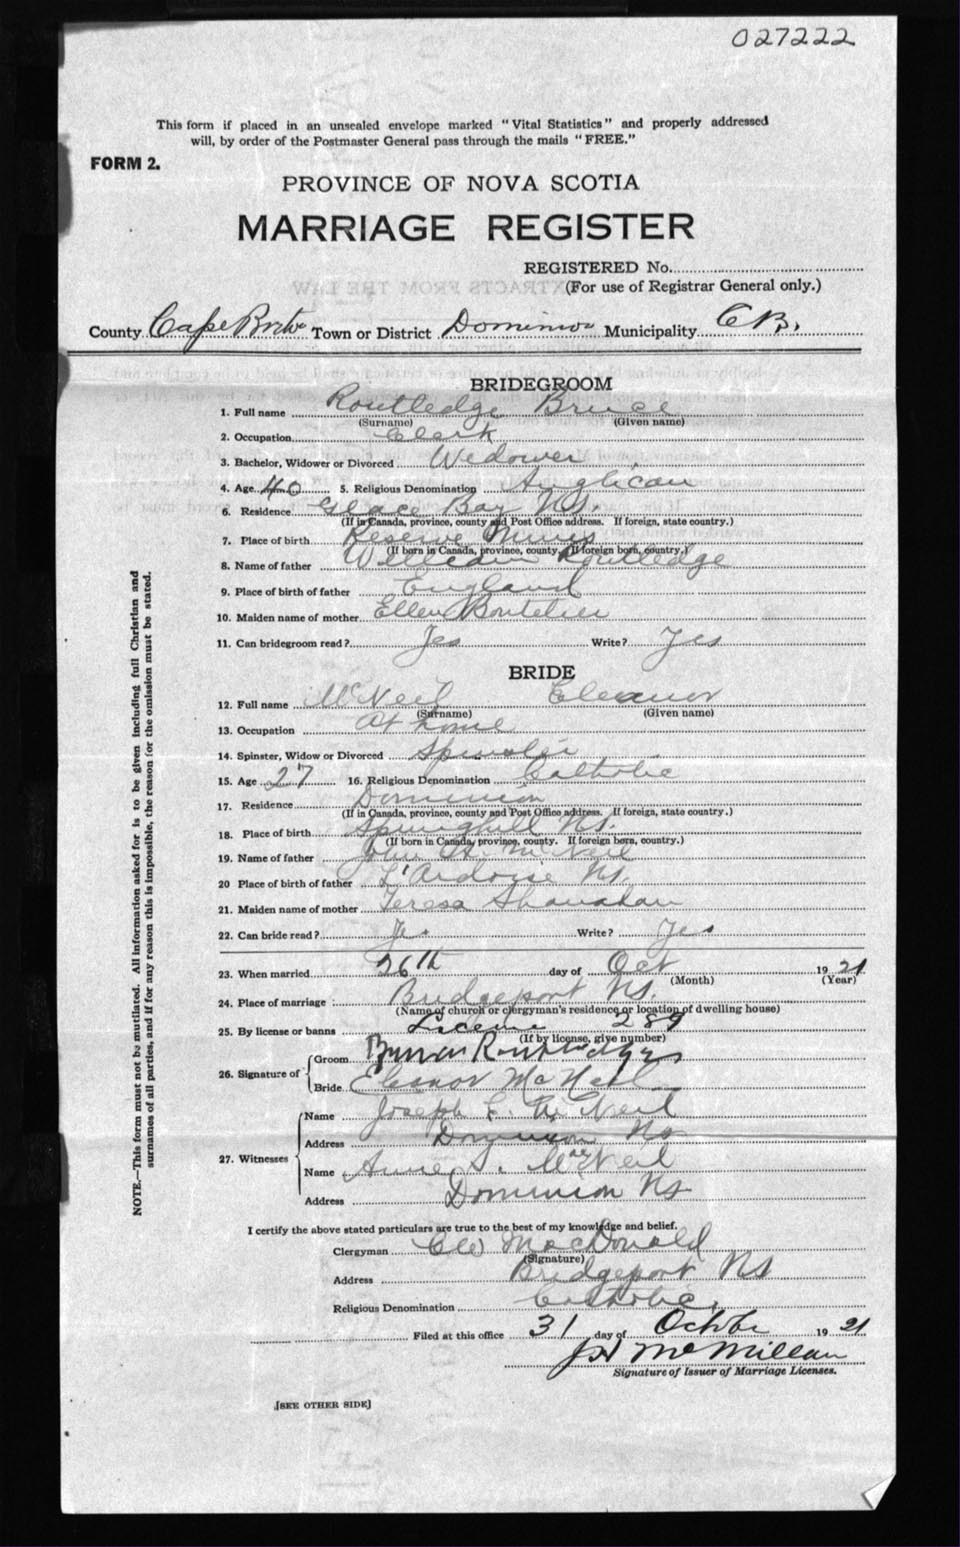 027222
This form if placed in an unsealed envelope marked "Vital Statistics" and properly addressed
will, by order of the Postmaster General pass through the mails "FREE."
FORM 2.
PROVINCE OF NOVA SCOTIA
MARRIAGE REGISTER
REGISTERED No.
(For use of Registrar General only.)
County Cape Breton Town or District Dominion Municipality C B.
BRIDEGROOM
1. Full name Routledge Bruce
(Surname) (Given name)
2. Occupation Clerk
3. Bachelor, Widower or Divorced Widower
4. Age 40 5. Religious Denomination Anglican
6. Residence Glace Bay N.S.
(If in Canada, province, county and Post Office address. If foreign, state country.)
7. Place of birth Reserve Mines
(If born in Canada, province, county. If foreign born, country.)
8. Name of father William Routledge
9. Place of birth of father England
10. Maiden name of mother Ellen Boutelier
11. Can bridegroom read? Yes Write? Yes
BRIDE
12. Full name McNeil Eleanor
(Surname) (Given name)
13. Occupation At home
14. Spinster, Widow or Divorced Spinster
15. Age 27 16. Religious Denomination Catholic
17. Residence Dominion
(If in Canada, province, county and Post Office address. If foreign, state country.)
18. Place of birth Springhill N.S.
(If born in Canada, province, county. If foreign born, country.)
19. Name of father John McNeil
20 Place of birth of father L'Ardoise N.S.
21. Maiden name of mother Teresa Shanahan
22. Can bride read? Yes Write? Yes
23. When married 26th day of Oct 1921
(Month) (Year)
24. Place of marriage Bridgeport N.S.
(Name of church or clergyman's residence or location of dwelling house)
25. By license or banns License 289
(If by license, give number)
26. Signature of Groom Routledge
Bride Eleanor McNeil
27. Witnesses
Name Joseph L. McNeil
Address Dominion NS
Name Annie S. MacNeil
Address Dominion NS
I certify the above stated particulars are true to the best of my knowledge and belief.
Clergyman CW MacDonald
(Signature)
Address Bridgeport NS
Religious Denomination Catholic.
Filed at this office 31 day of October 1921
McMillan
Signature of Issuer of Marriage Licenses.
[SEE OTHER SIDE]
NOTE.—This form must not be mutilated. All information asked for is to be given including full Christian and
surnames of all parties, and if for any reason this is impossible, the reason for the omission must be stated.